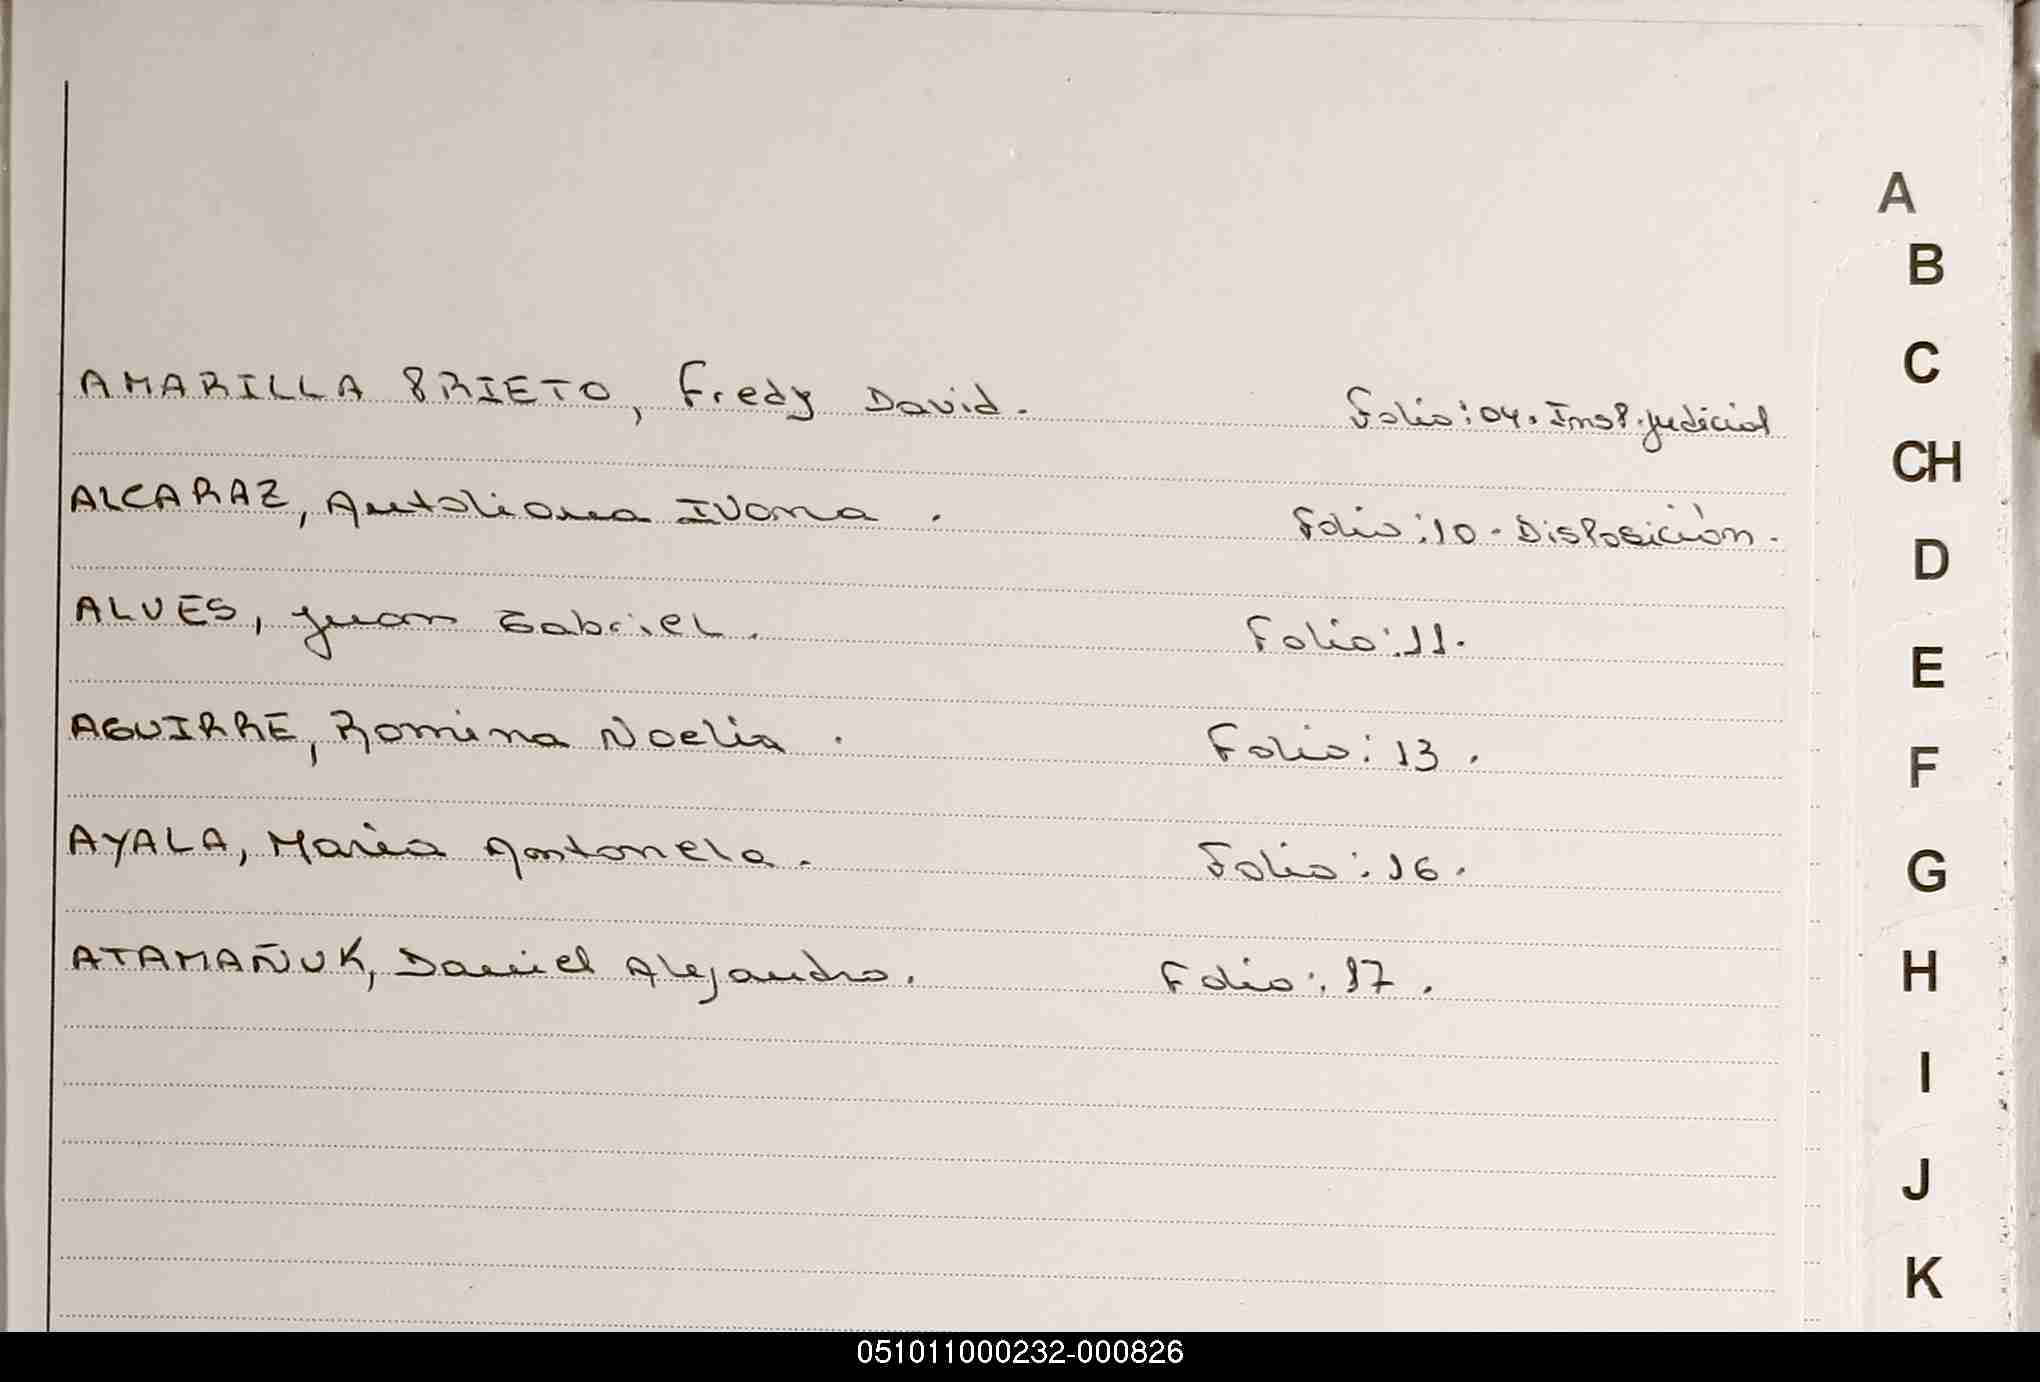 A
B
C
AMARILLA PRIETO, Fredy David. Folio: 04. Insp. Judicial
CH
ALCARAZ, Antoliana Ivona. Folio: 10 - Disposición.
D
ALVES, Juan Gabriel. Folio: 11.
E
AGUIRRE, Romina Noelia. Folio: 13.
F
AYALA, María Antonela. Folio: 16.
G
ATAMAÑUK, Daniel Alejandro. Folio: 17.
H
I
J
K
051011000232-000826